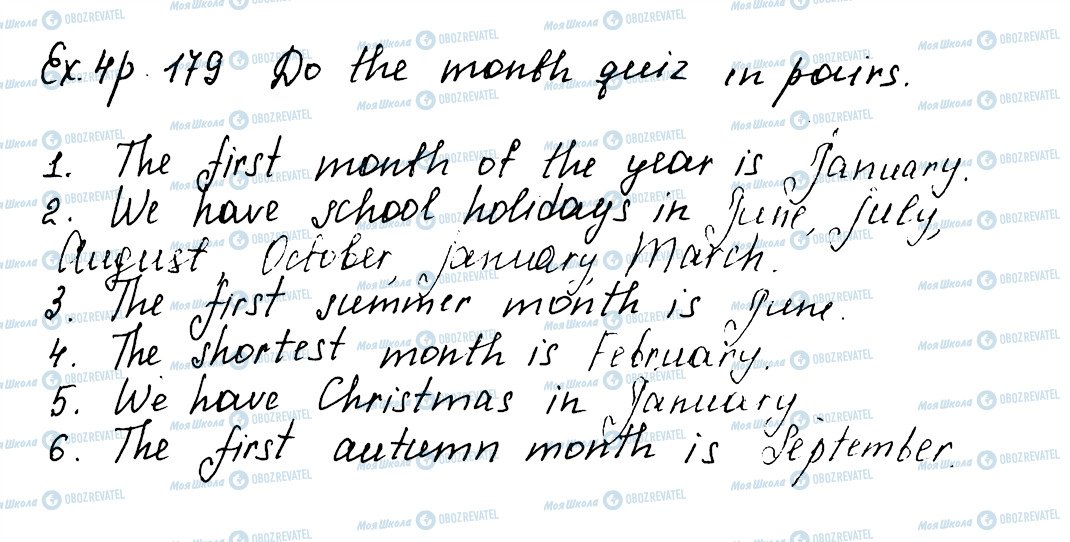 Ex. 4 p. 179 Do the month quiz in pairs.
1. The first month of the year is January.
2. We have school holidays in June, July,
August, October, January, March.
3. The first summer month is June.
4. The shortest month is February.
5. We have Christmas in January
6. The first autumn month is September.
Моя Школа OBOZREVATEL